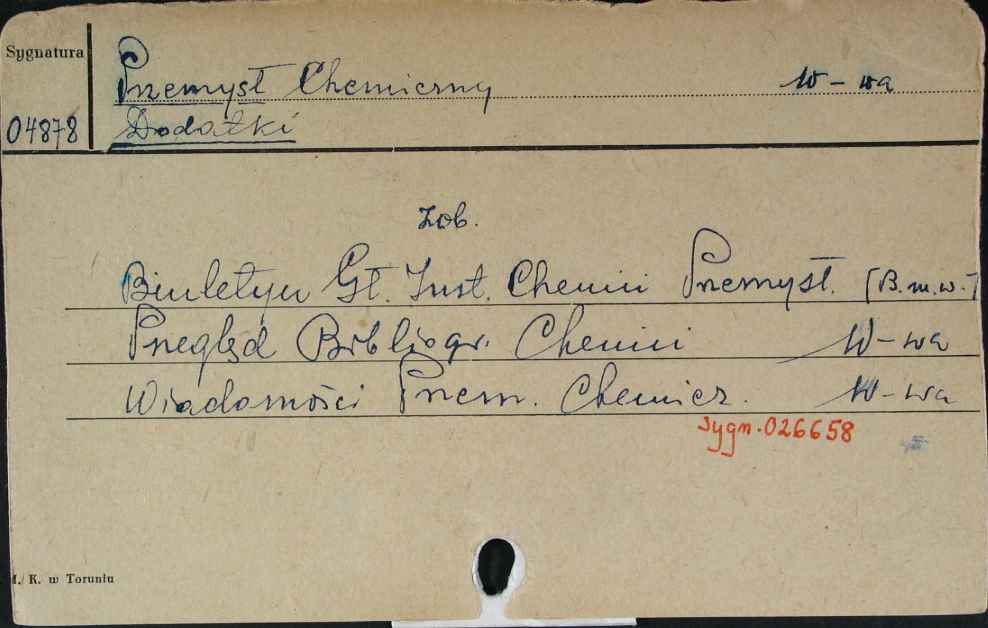 Sygnatura
Przemysł Chemiczny W-wa
04878 Dodatki
Zob.
Biuletyn Gł. Inst. Chemii Przemysł. [B.m.w.]
Przegląd Bibliogr. Chemii W-wa
Wiadomości Przem. Chemicz. W-wa
sygn. 026658
M. K. w Toruniu